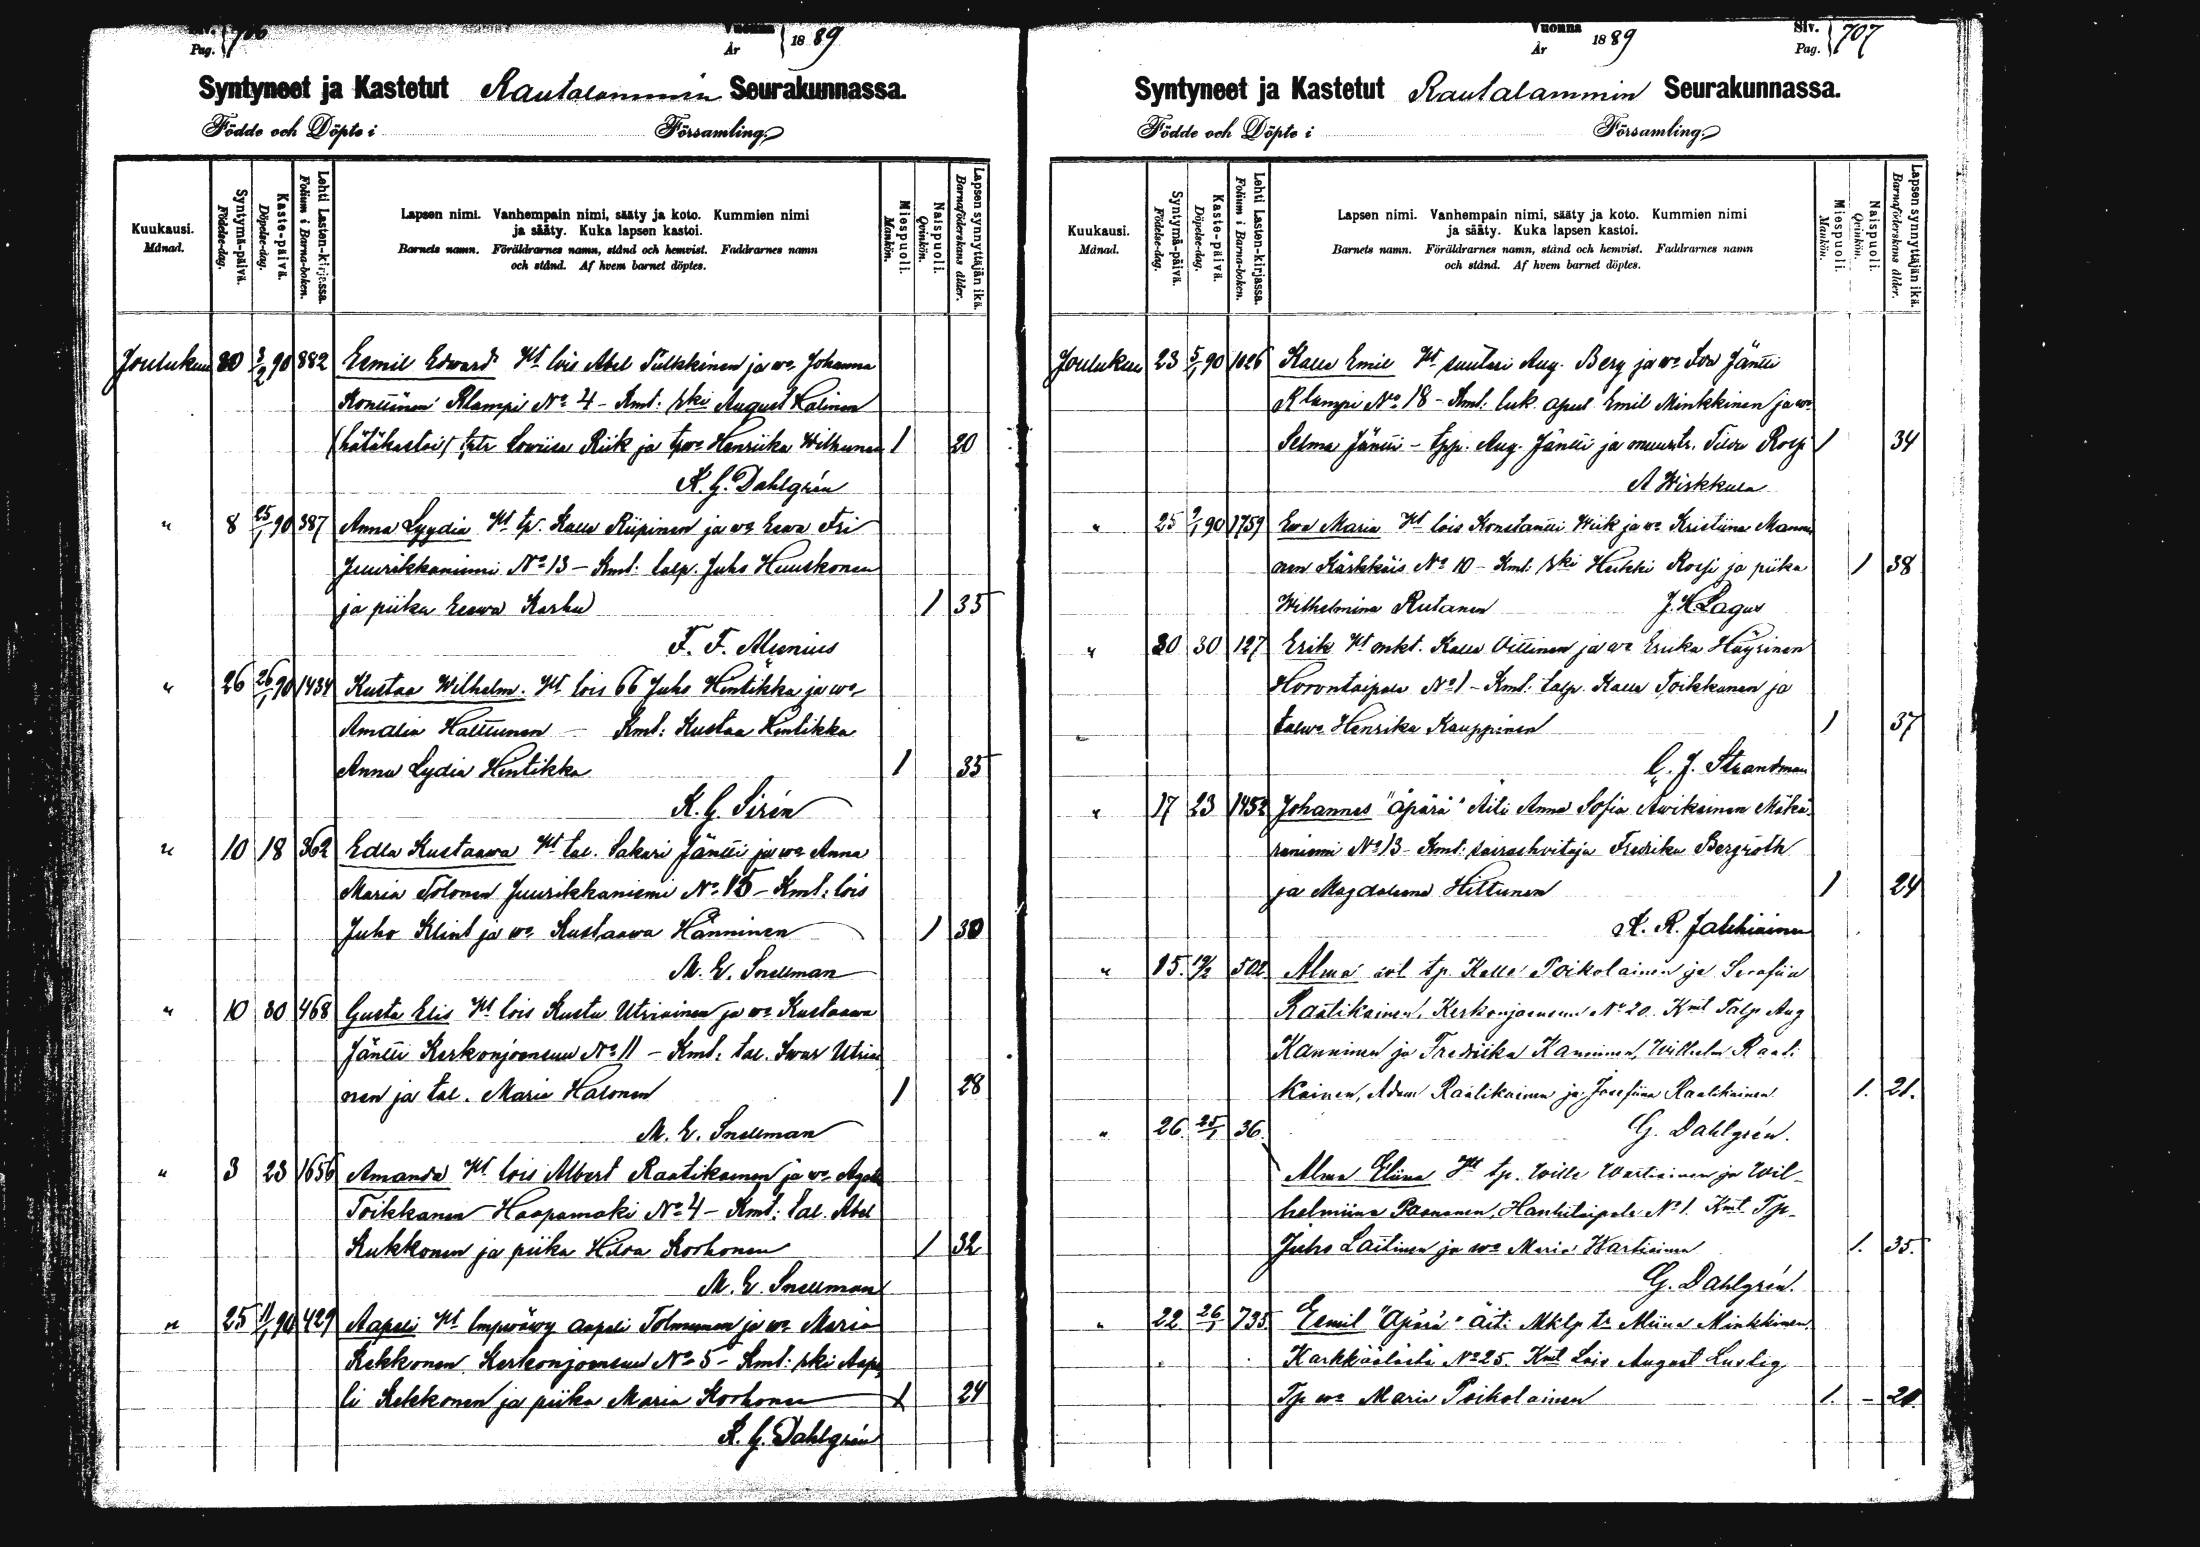 Pag. 706
Vuonna
År 1889
Syntyneet ja Kastetut Rautalammin Seurakunnassa.
Födde och Döpte i Församling.
Kuukausi.
Månad.
Syntymä-päivä.
Födelse-dag.
Kaste-päivä.
Döpelse-dag.
Lehti Lasten-kirjassa.
Folium i Barna-boken.
Lapsen nimi. Vanhempain nimi, sääty ja koto. Kummien nimi
ja sääty. Kuka lapsen kastoi.
Barnets namn. Föräldrarnes namn, stånd och hemvist. Faddrarnes namn
och stånd. Af hvem barnet döptes.
Miespuoli.
Mankön.
Naispuoli.
Qvinkön.
Lapsen synnyttäjän ikä.
Barnaföderskans ålder.
Joulukuu 3/2 90 882 Eemil Edward lois Abel Tulkkinen ja wo Johanna
Konttinen Rlampi No 4 - Kmt: rki August Halinen
(hätäkastoi) Lowiisa Riik ja Henriika 1 20
K. G. Dahlgrén
" 8 25/1 90 387 Anna Lyydia tp. Kalle Riipinen ja wo Eewa
Juurikkaniemi No 13 - Kmt: talp. Juho Huuskonen
ja piika Eewa Karhu 1 35
F. F. Munius
" 26 26/1 90 1434 Kustaa Wilhelm. lois 66 Juho Hintikka ja wo
Amalia Halttunen - Kmt: Kustaa Hintikka
Anna Lydia Hintikka 1 35
K. G. Sirén
" 10 18 362 Edla Kustaawa tal. Sakari Jäntti ja wo Anna
Maria Tolonen Juurikkaniemi No 15 - Kmt: lois
Juho Klint ja wo Kustaawa Hänninen 1 30
M. E. Snellman
" 10 30 468 Gusta Elis lois Kusta Utriainen ja wo Kustaawa
Jäntti Kerkonjoensuu No 11 - Kmt: tal. Utriai
nen ja tal. Maria Halonen 1 28
M. E. Snellman
" 3 23 1656 Amanda lois Albert Raatikainen ja wo
Toikkanen Haapamäki No 4 - Kmt: tal. Abel
Kukkonen ja piika Hilda Korhonen 1 32
M. E. Snellman
" 25 11/1 90 429 Aapeli Aapeli Tolmunen ja wo Maria
Kekkonen Kerkonjoensuu No 5 - Kmt: rki Aape
li Kekkonen ja piika Maria Korhonen 1 24
K. G. Dahlgrén
Vuonna
År 1889
Siv.
Pag. 707
Syntyneet ja Kastetut Rautalammin Seurakunnassa.
Födde och Döpte i Församling.
Kuukausi.
Månad.
Syntymä-päivä.
Födelse-dag.
Kaste-päivä.
Döpelse-dag.
Lehti Lasten-kirjassa.
Folium i Barna-boken.
Lapsen nimi. Vanhempain nimi, sääty ja koto. Kummien nimi
ja sääty. Kuka lapsen kastoi.
Barnets namn. Föräldrarnes namn, stånd och hemvist. Faddrarnes namn
och stånd. Af hvem barnet döptes.
Miespuoli.
Mankön.
Naispuoli.
Qvinkön.
Lapsen synnyttäjän ikä.
Barnaföderskans ålder.
Joulukuu 23 5/1 90 1026 Kalle Emil suutari Aug. Berg ja wo Ida Jäntti
Rlampi No 18 - Kmt: luk. apul. Emil Minkkinen ja wo
Selma Jäntti - tpp. Aug. Jäntti ja 1 34
A Wirkkula
" 25 9/1 90 1759 Ewa Maria lois Konstantti Wiik ja wo Kristiina Manni
nen Kärkkäis No 10 - Kmt: rki Heikki Rossi ja piika 1 38
Wilhelmina Rutanen J. H. Lagus
" 30 30 127 Erik mkt. Kalle Villinen ja wo Eriika Häyrinen
Horontaipale No 1 - Kmt: talp. Kalle Toikkanen ja
talwo Henrika Kauppinen 1 37
C. J. Strandman
" 17 23 1452 Johannes "äpärä" Äiti Anna Sofia Awikainen Mäkä
räniemi No 13 - Kmt: sairashoitaja Fredrika Bergroth
ja Magdaleena Hiltunen 1 24
K. R. Jalkiainen
" 15. 12/2 502. Alma tp. Kalle Poikolainen ja Serafiia
Raatikainen, Kerkonjoensuu No 20. Kmt Talp Aug
Kanninen ja Fredriika Kanninen, Wilhelm Raati
kainen, Adam Raatikainen ja Josefiina Raatikainen 1. 21.
G. Dahlgrén.
" 26. 25/1 36. Alma Eliina tp. Wille Wartiainen ja Wil-
helmiina Paananen, Hankitaipale No 1. Kmt Tp.
Juho Laitinen ja wo Maria Wartiainen 1. 35.
G. Dahlgrén.
" 22. 26/1 735. Eemil "Äpärä" Äiti Mklp tr Miina Minkkinen
No 25. Kmt Lois August Lustig
Tp wo Maria Poikolainen 1. - 20.